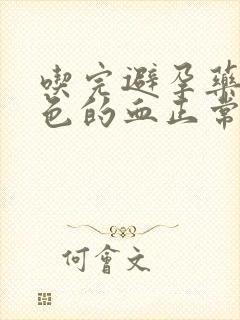 喫完避孕藥
色的血正常
何會文